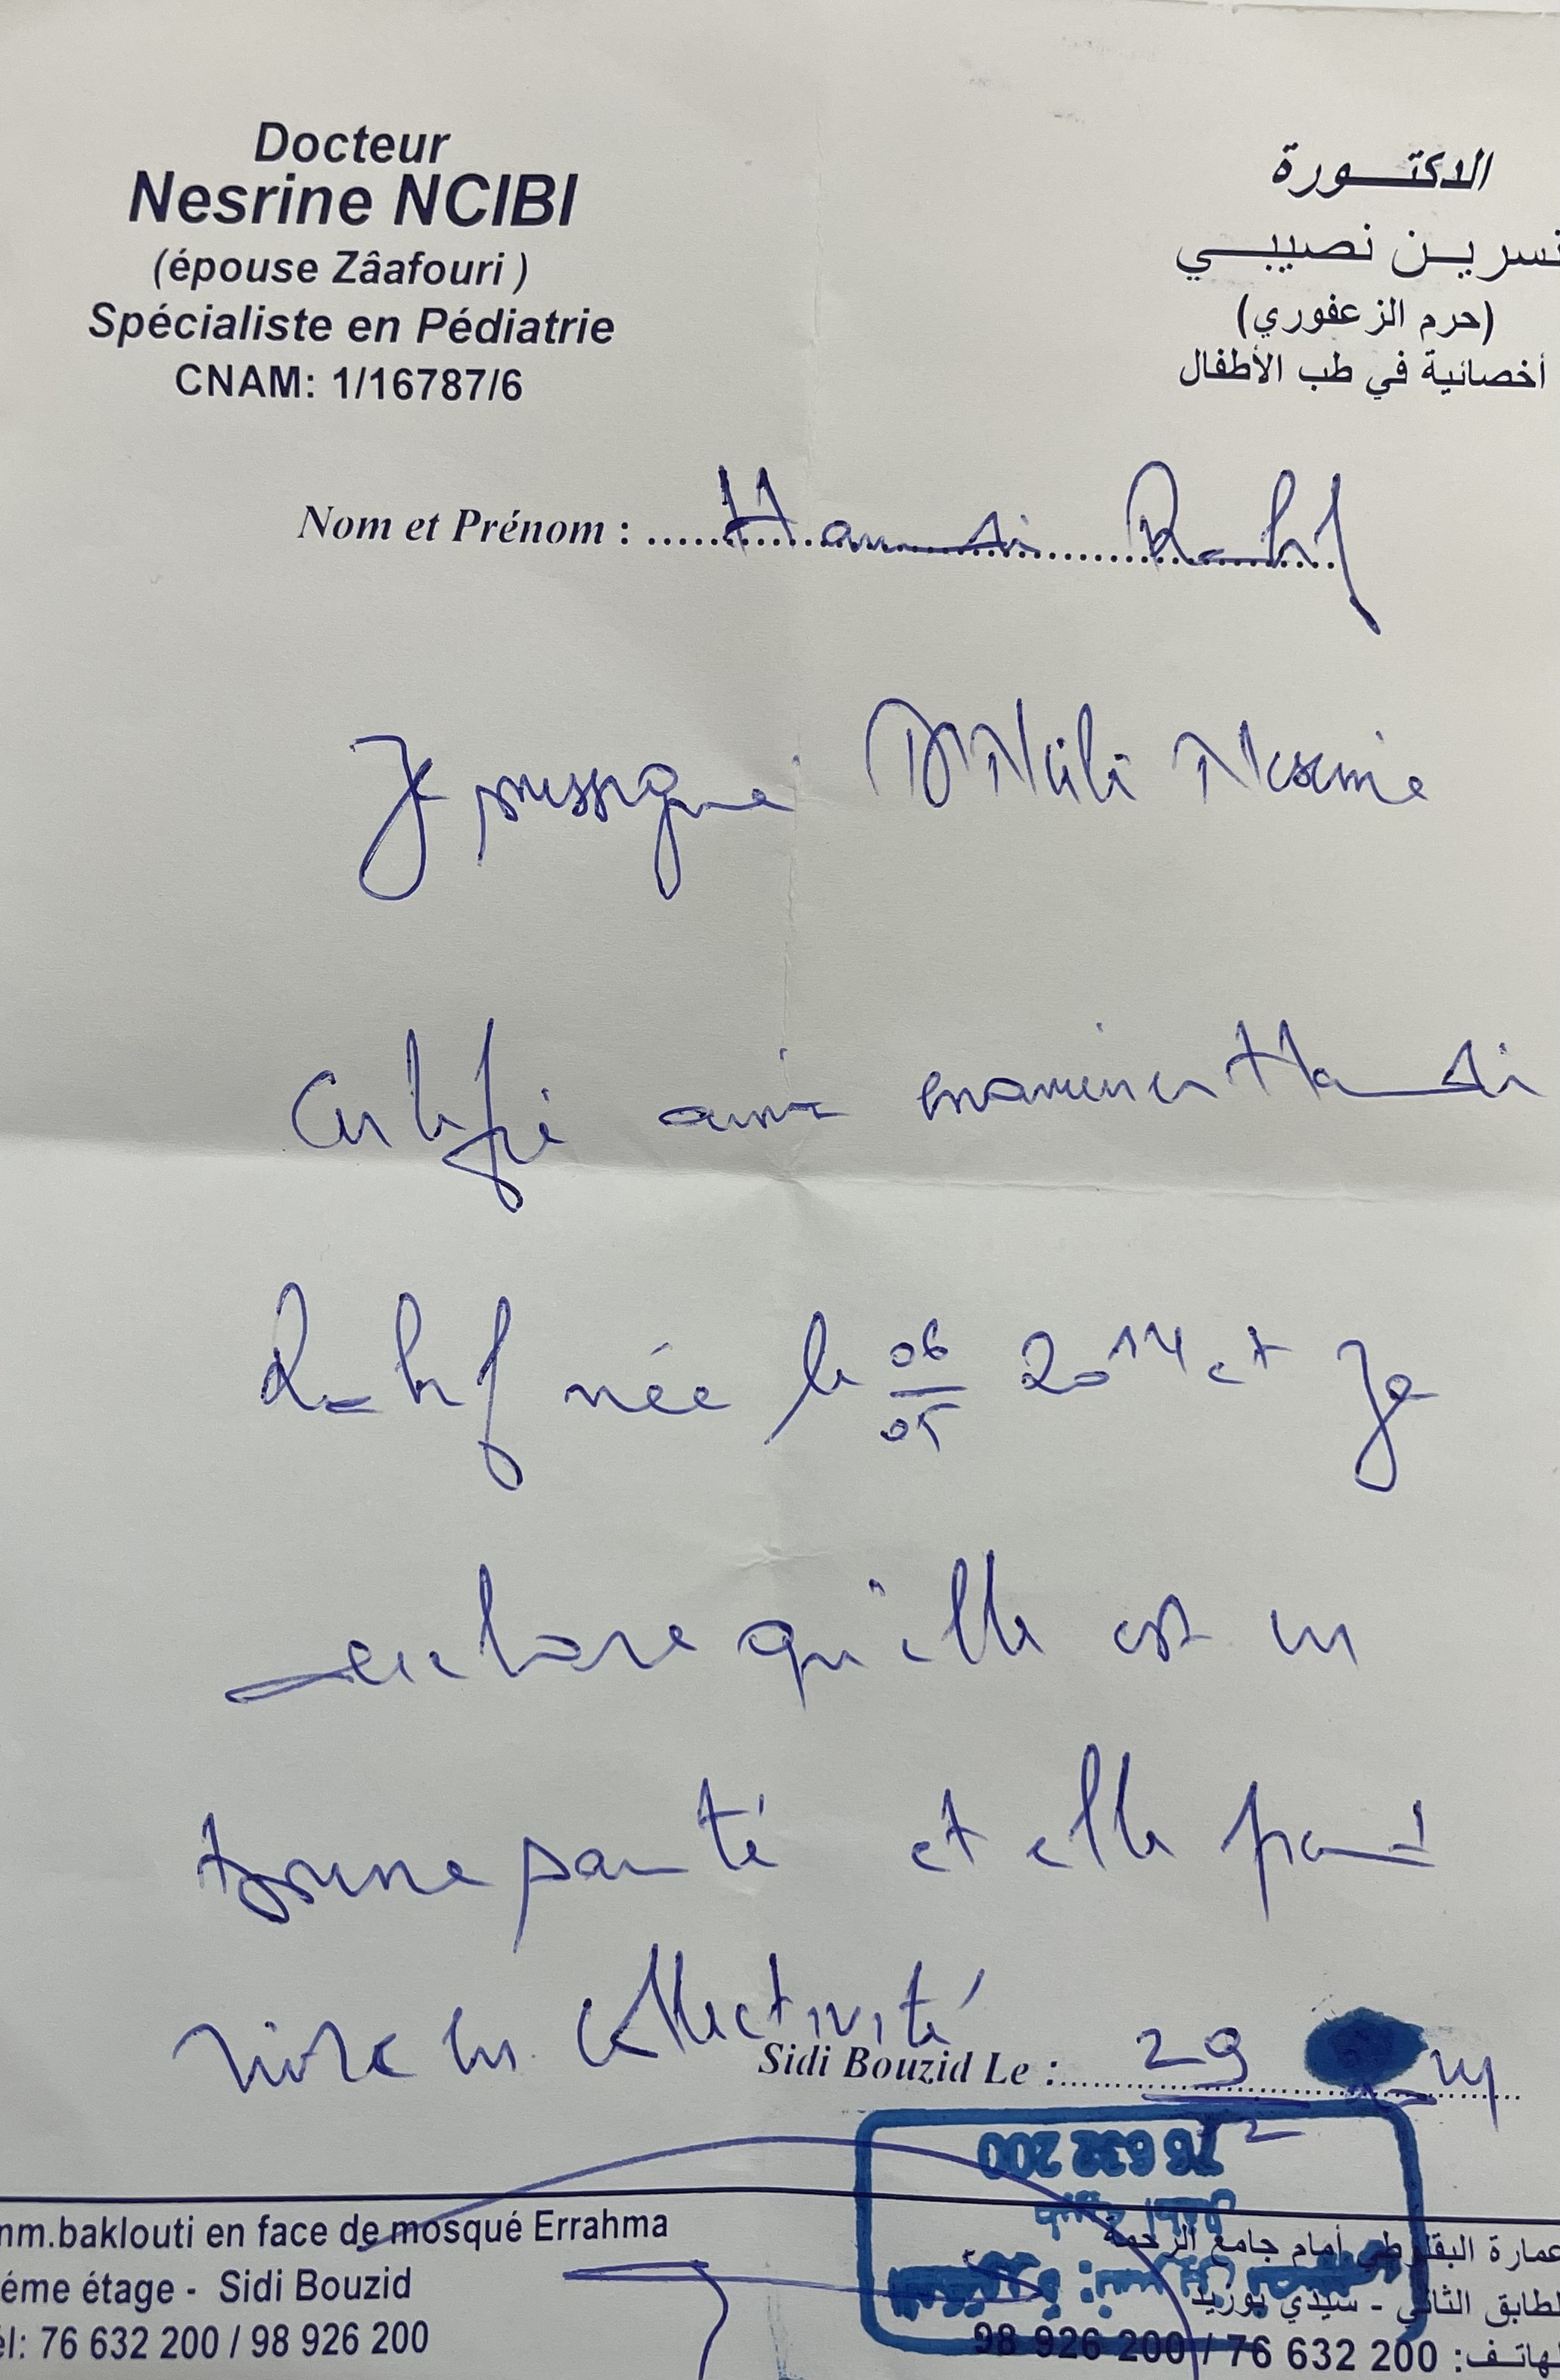 Docteur
Nesrine NCIBI
(épouse Zâafouri )
Spécialiste en Pédiatrie
CNAM: 1/16787/6
الدكتـــورة
نسريـن نصيبـــي
(حرم الزعفوري)
أخصائية في طب الأطفال
Nom et Prénom : Hamdi Rahf
Je soussigné Dr Ncibi Nesrine
Certifie avoir examiner Hamdi
Rahf née le 06/05 2014 et Je
déclare qu'elle est en
bonne santé et elle peut
vivre en collectivité
Sidi Bouzid Le : 29
12
mm.baklouti en face de mosqué Errahma
éme étage - Sidi Bouzid
él: 76 632 200 / 98 926 200
76 632 200
عمارة البقلوطي أمام جامع الرحمة
لطابق الثاني - سيدي بوزيد
لهاتـف: 76 632 200 / 98 926 200